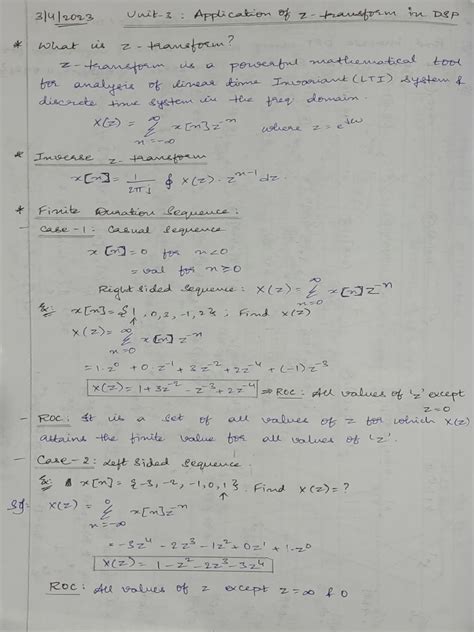 3/4/2023 Unit-3: Application of z-transform in DSP
* What is z-transform?
z-transform is a powerful mathematical tool
for analysis of linear time Invariant (LTI) system &
discrete time system in the freq domain.
X(z) = ∞Σn=-∞ x[n]z^-n where z = e^jω
* Inverse z-transform
x[n] = 1/2πj ∮ X(z). z^n-1 dz.
* Finite Duration Sequence:
- Case-1: Casual Sequence
x[n] = 0 for n<0
= val for n≥0
Right sided sequence: X(z) = ∞Σn=0 x[n]z^-n
Ex: x[n] = {1, 0, 2, -1, 2}; Find X(z)
↑
X(z) = ∞Σn=0 x[n] z^-n
= 1.z^0 + 0.z^-1 + 3z^-2 + 2z^-4 + (-1)z^-3
X(z) = 1+3z^-2 - z^-3 + 2z^-4 ⇒ ROC: All values of 'z' except
z=0
- ROC: It is a set of all values of z for which X(z)
attains the finite value for all values of 'z'.
- Case-2: Left Sided Sequence
Ex: x[n] = {-3, -2, -1, 0, 1}. Find X(z)=?
↑
X(z) = 0Σn=-∞ x[n]z^-n
= -3z^4 - 2z^3 - 1z^2 + 0z^1 + 1.z^0
X(z) = 1 - z^2 - 2z^3 - 3z^4
ROC: All values of z except z=∞ & 0